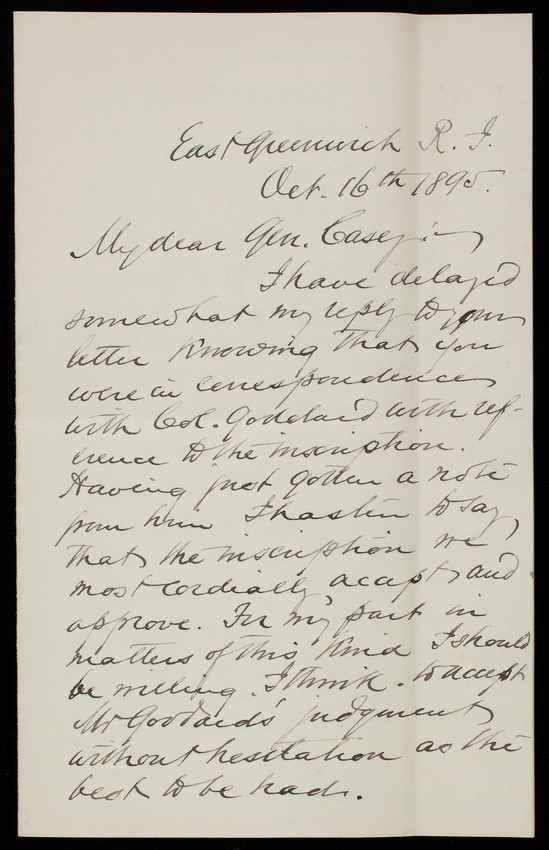 East Greenwich R. I.
Oct. 16th 1895.
My dear Gen. Casey:—
I have delayed
somewhat my reply to your
letter knowing that you
were in correspondence
with Col. Goddard with ref-
erence to the inscription.
Having just gotten a note
from him I hasten to say
that the inscription we
most cordially accept and
approve. For my part in
matters of this kind I should
be willing, I think, to accept
Mr Goddard's judgment
without hesitation as the
best to be had.